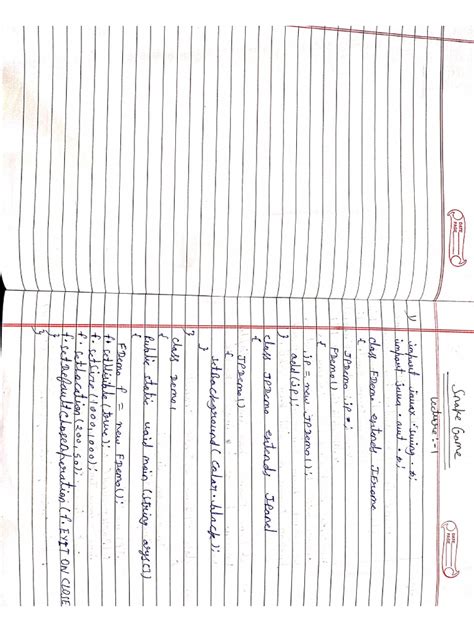 Snake Game
Lecture:-1
1) import javax.swing.*;
import java.awt.*;
class FDemo extends JFrame
{
JPDemo jp;
FDemo()
{
jp = new JPDemo();
add(jp);
}
}
class JPDemo extends JPanel
{
JPDemo()
{
setBackground(Color.black);
}
}
class Demo1
{
Public static void main (String args[])
{
FDemo f = new FDemo();
f.setVisible(true);
f.setSize(1000,1000);
f.setLocation(200,50);
f.setDefaultCloseOperation(f.EXIT ON CLOSE
}
}
DATE
PAGE
DATE
PAGE